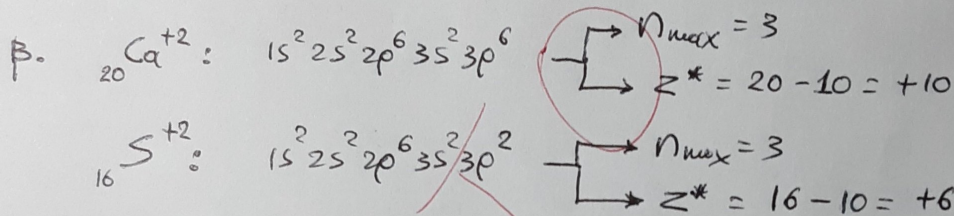 β. ₂₀Ca⁺²: 1s² 2s² 2p⁶ 3s² 3p⁶ nmax = 3
z* = 20 - 10 = +10
₁₆S⁺²: 1s² 2s² 2p⁶ 3s² 3p² nmax = 3
z* = 16 - 10 = +6